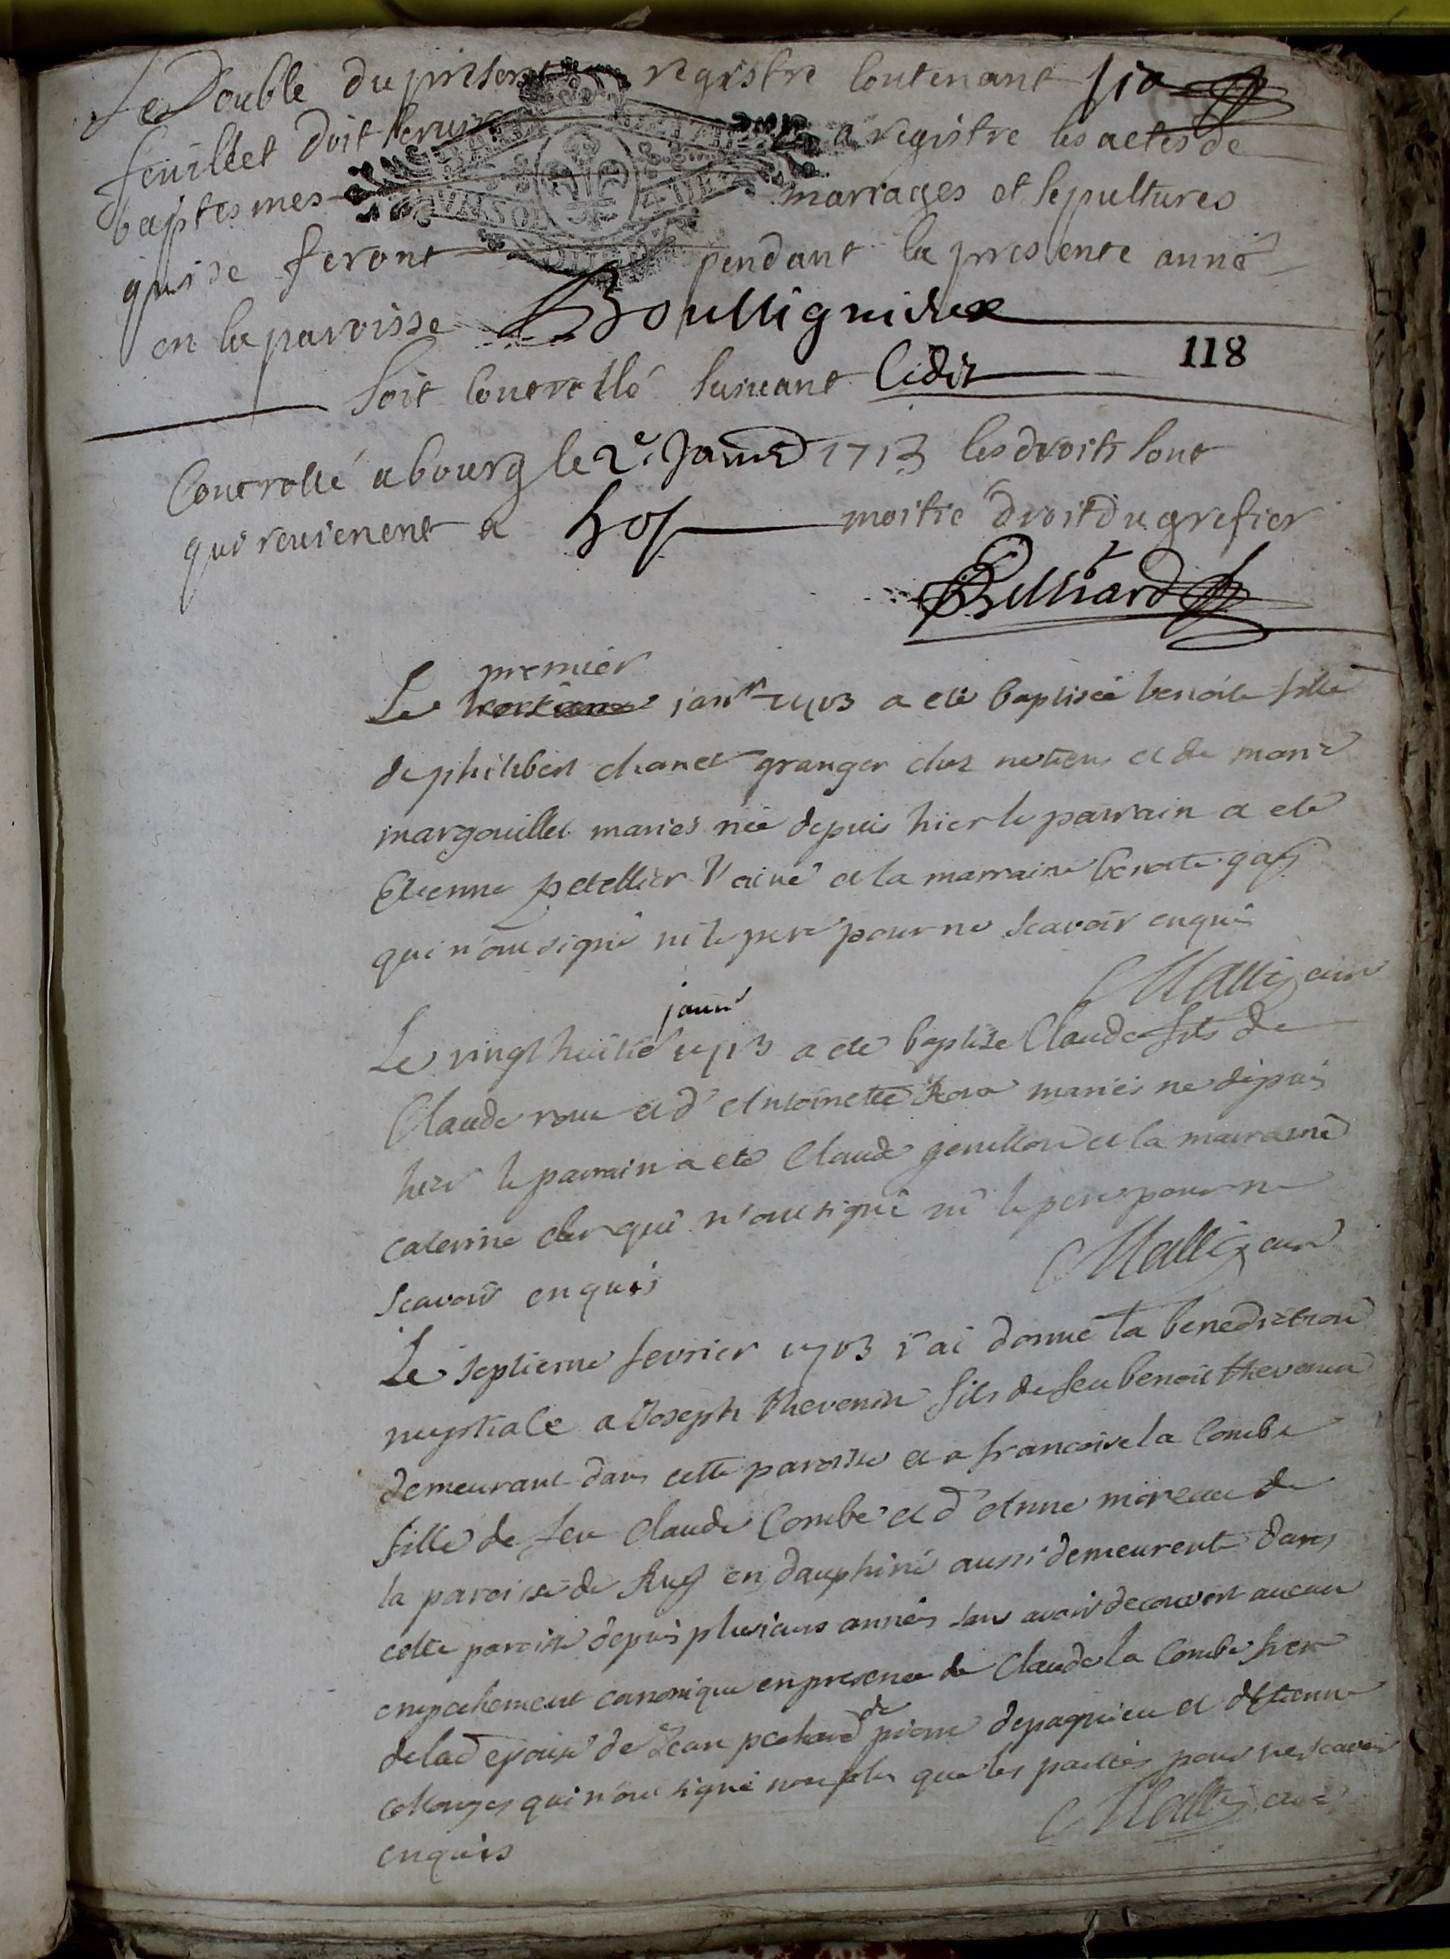 Le Double du present registre contenant six
feuillet doit servir a registre les actes de
baptesmes mariages et sepultures
qui se feront pendant la presente anné
en la paroisse Boullignieux
118
soit controllé suivant l'edit
Controllé a bourg le 2e Janvr 1713 les droits sont
qui revienent a moitié droit du grefier
Billiard
premier
Le janvr 1713 a eté baptisée benoite fille
de philibert chanet granger chez et de marie
margouillet mariés née depuis hier le parrain a eté
Etienne petellier l'ainé et la marraine benoite gay
qui n'ont signé ni le pere pour ne scavoir enquis
curé
janvr
Le vingt huitie 1713 a eté baptisé Claude fils de
Claude roux et d'Antoinette mariés ne depuis
hier le parrain a eté Claude genillon et la marraine
caterine qui n'ont signé ni le pere pour ne
scavoir enquis
curé
Le septieme fevrier 1713 j'ai donné la benediction
nuptiale a Joseph thevenin fils de feu benoit thevenin
demeurant dans cette paroisse et a francoise la Combe
fille de feu Claude Combe et d'Anne moreau de
la paroisse de Ruy en dauphiné aussi demeurente dans
cette paroisse depuis plusieurs annés sans avoir decouvert aucun
empechement canonique en presence de Claude la Combe frere
de lad epouse de Jean pechard de pierre depagnieu et d'Etienne
collonges qui n'ont signé non plus que les parties pour ne scavoir
enquis
curé